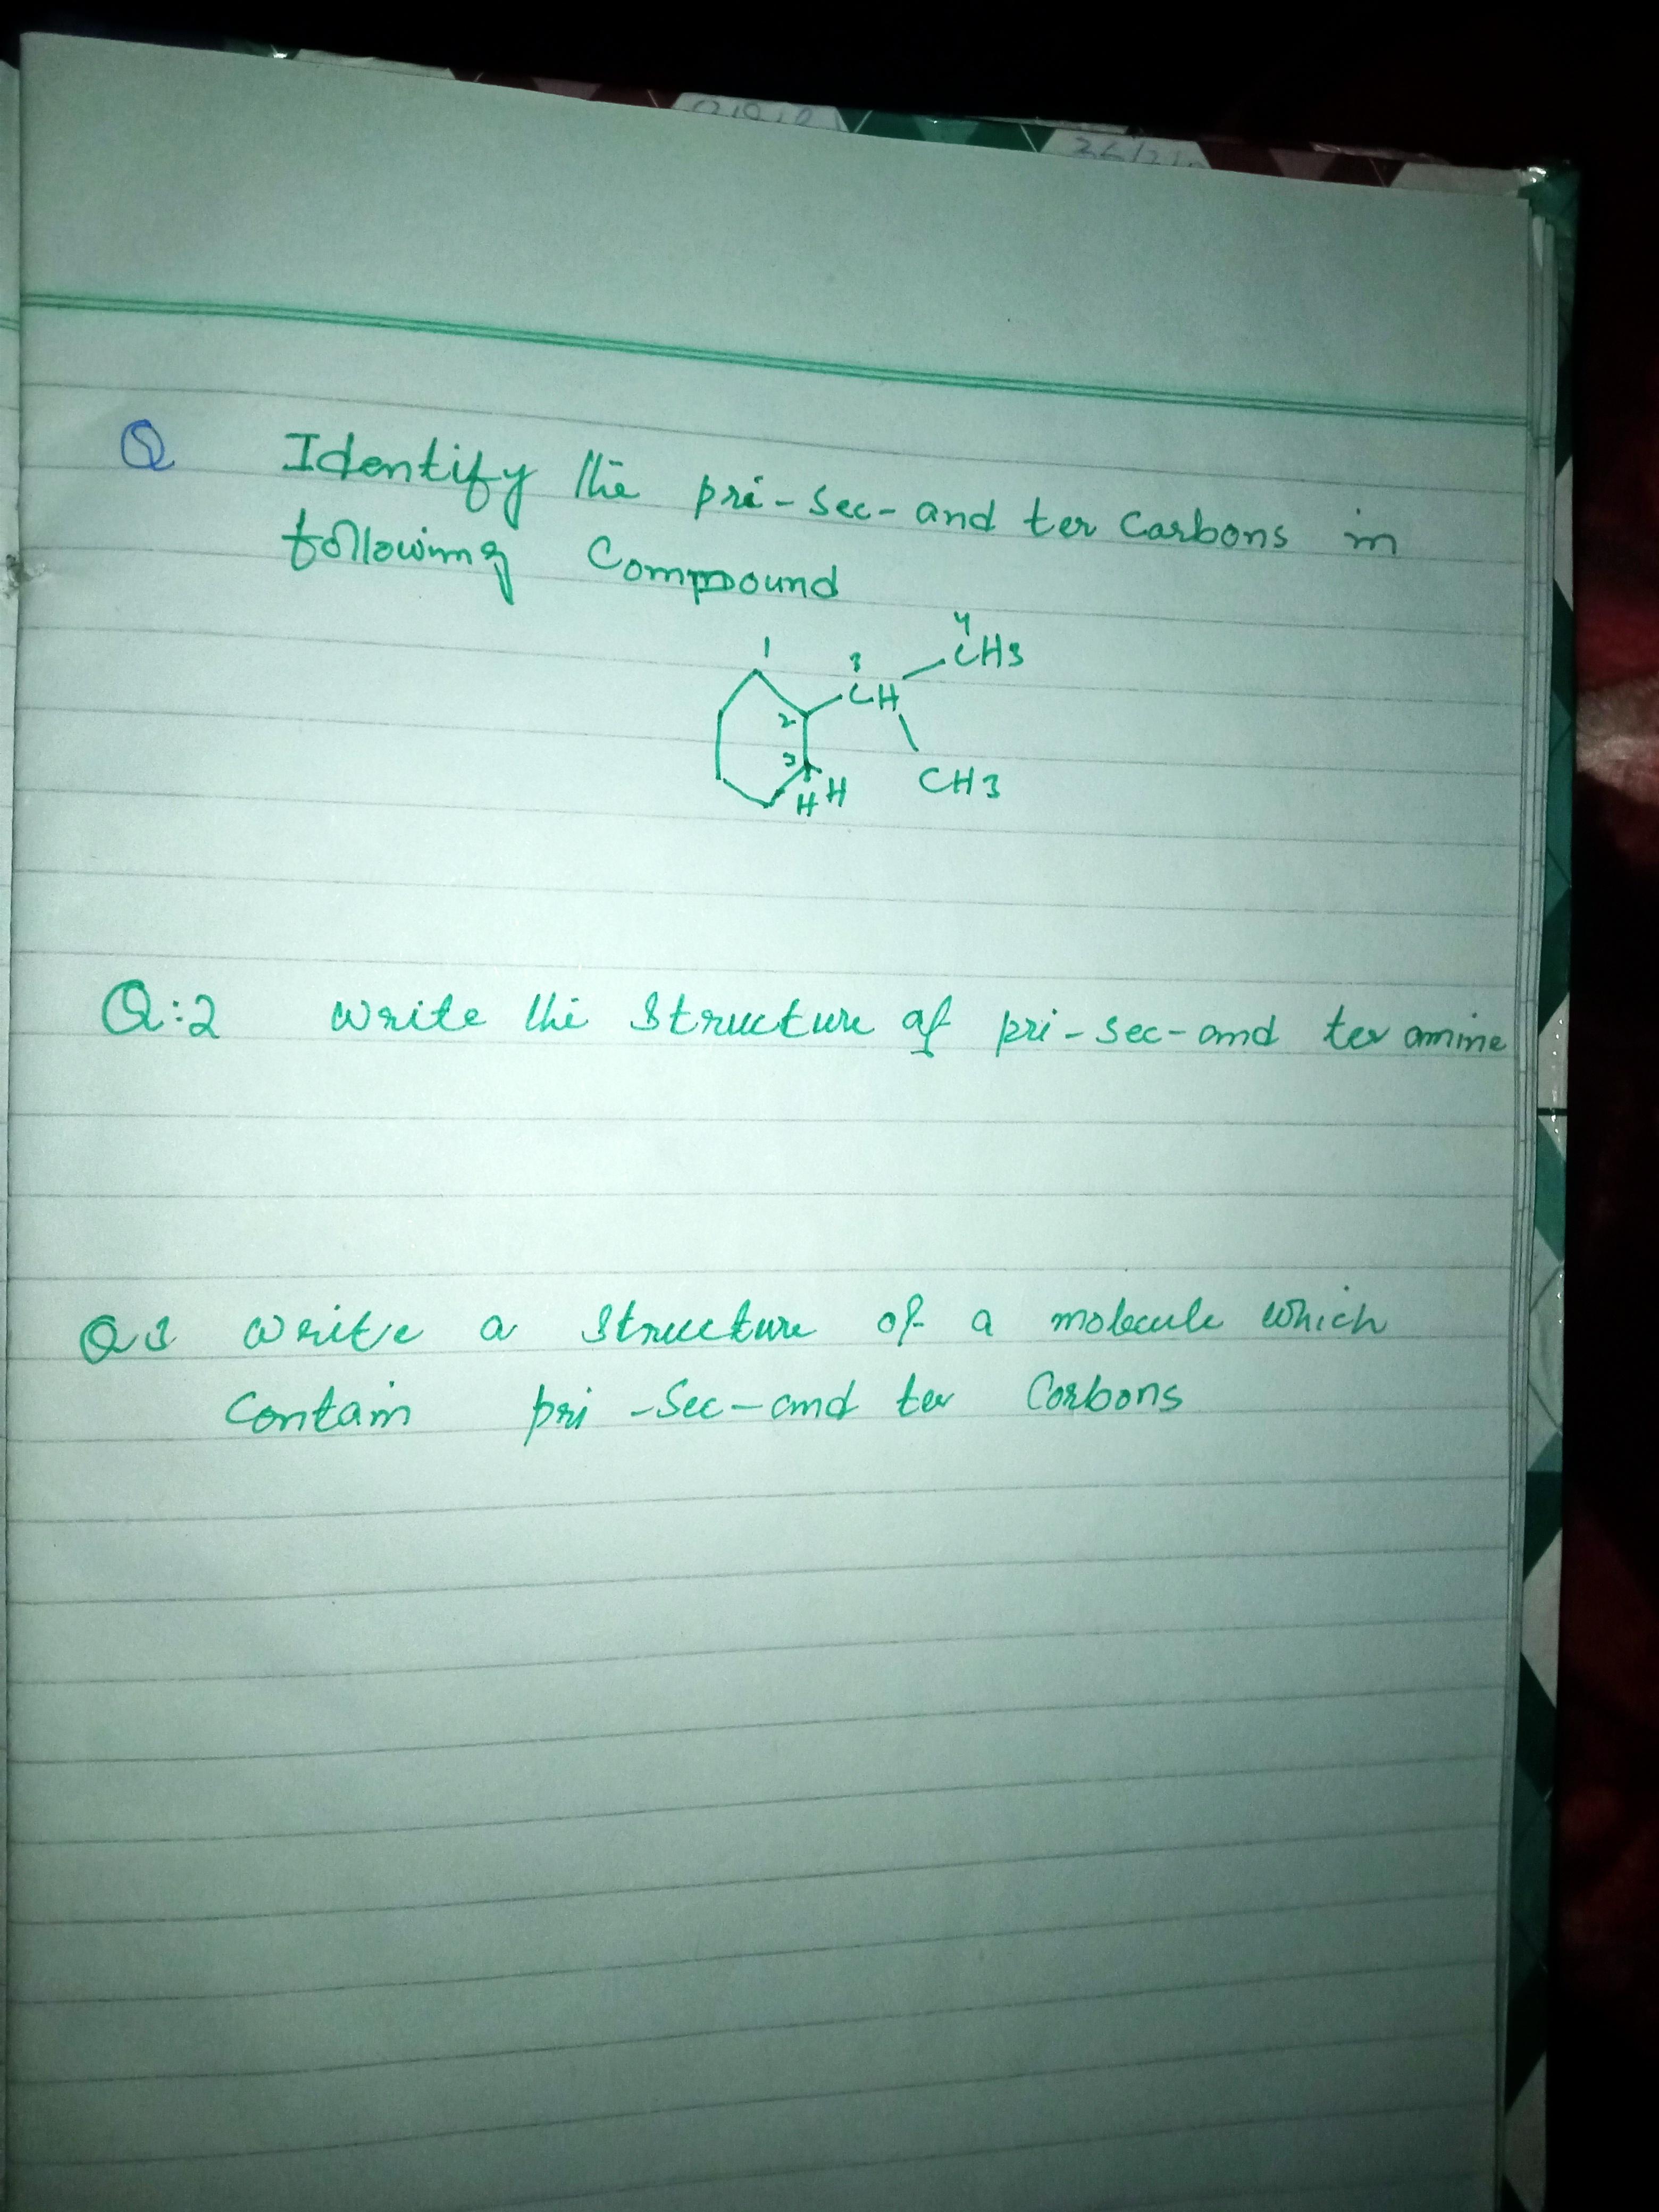 Q Identify the pri-sec-and ter carbons in
following Compound
1
4
3
CH3
CH
2
3
H H
CH3
Q:2 write the structure of pri-sec-and ter amine
Q3 write a structure of a molecule which
contain pri-sec-and ter Carbons